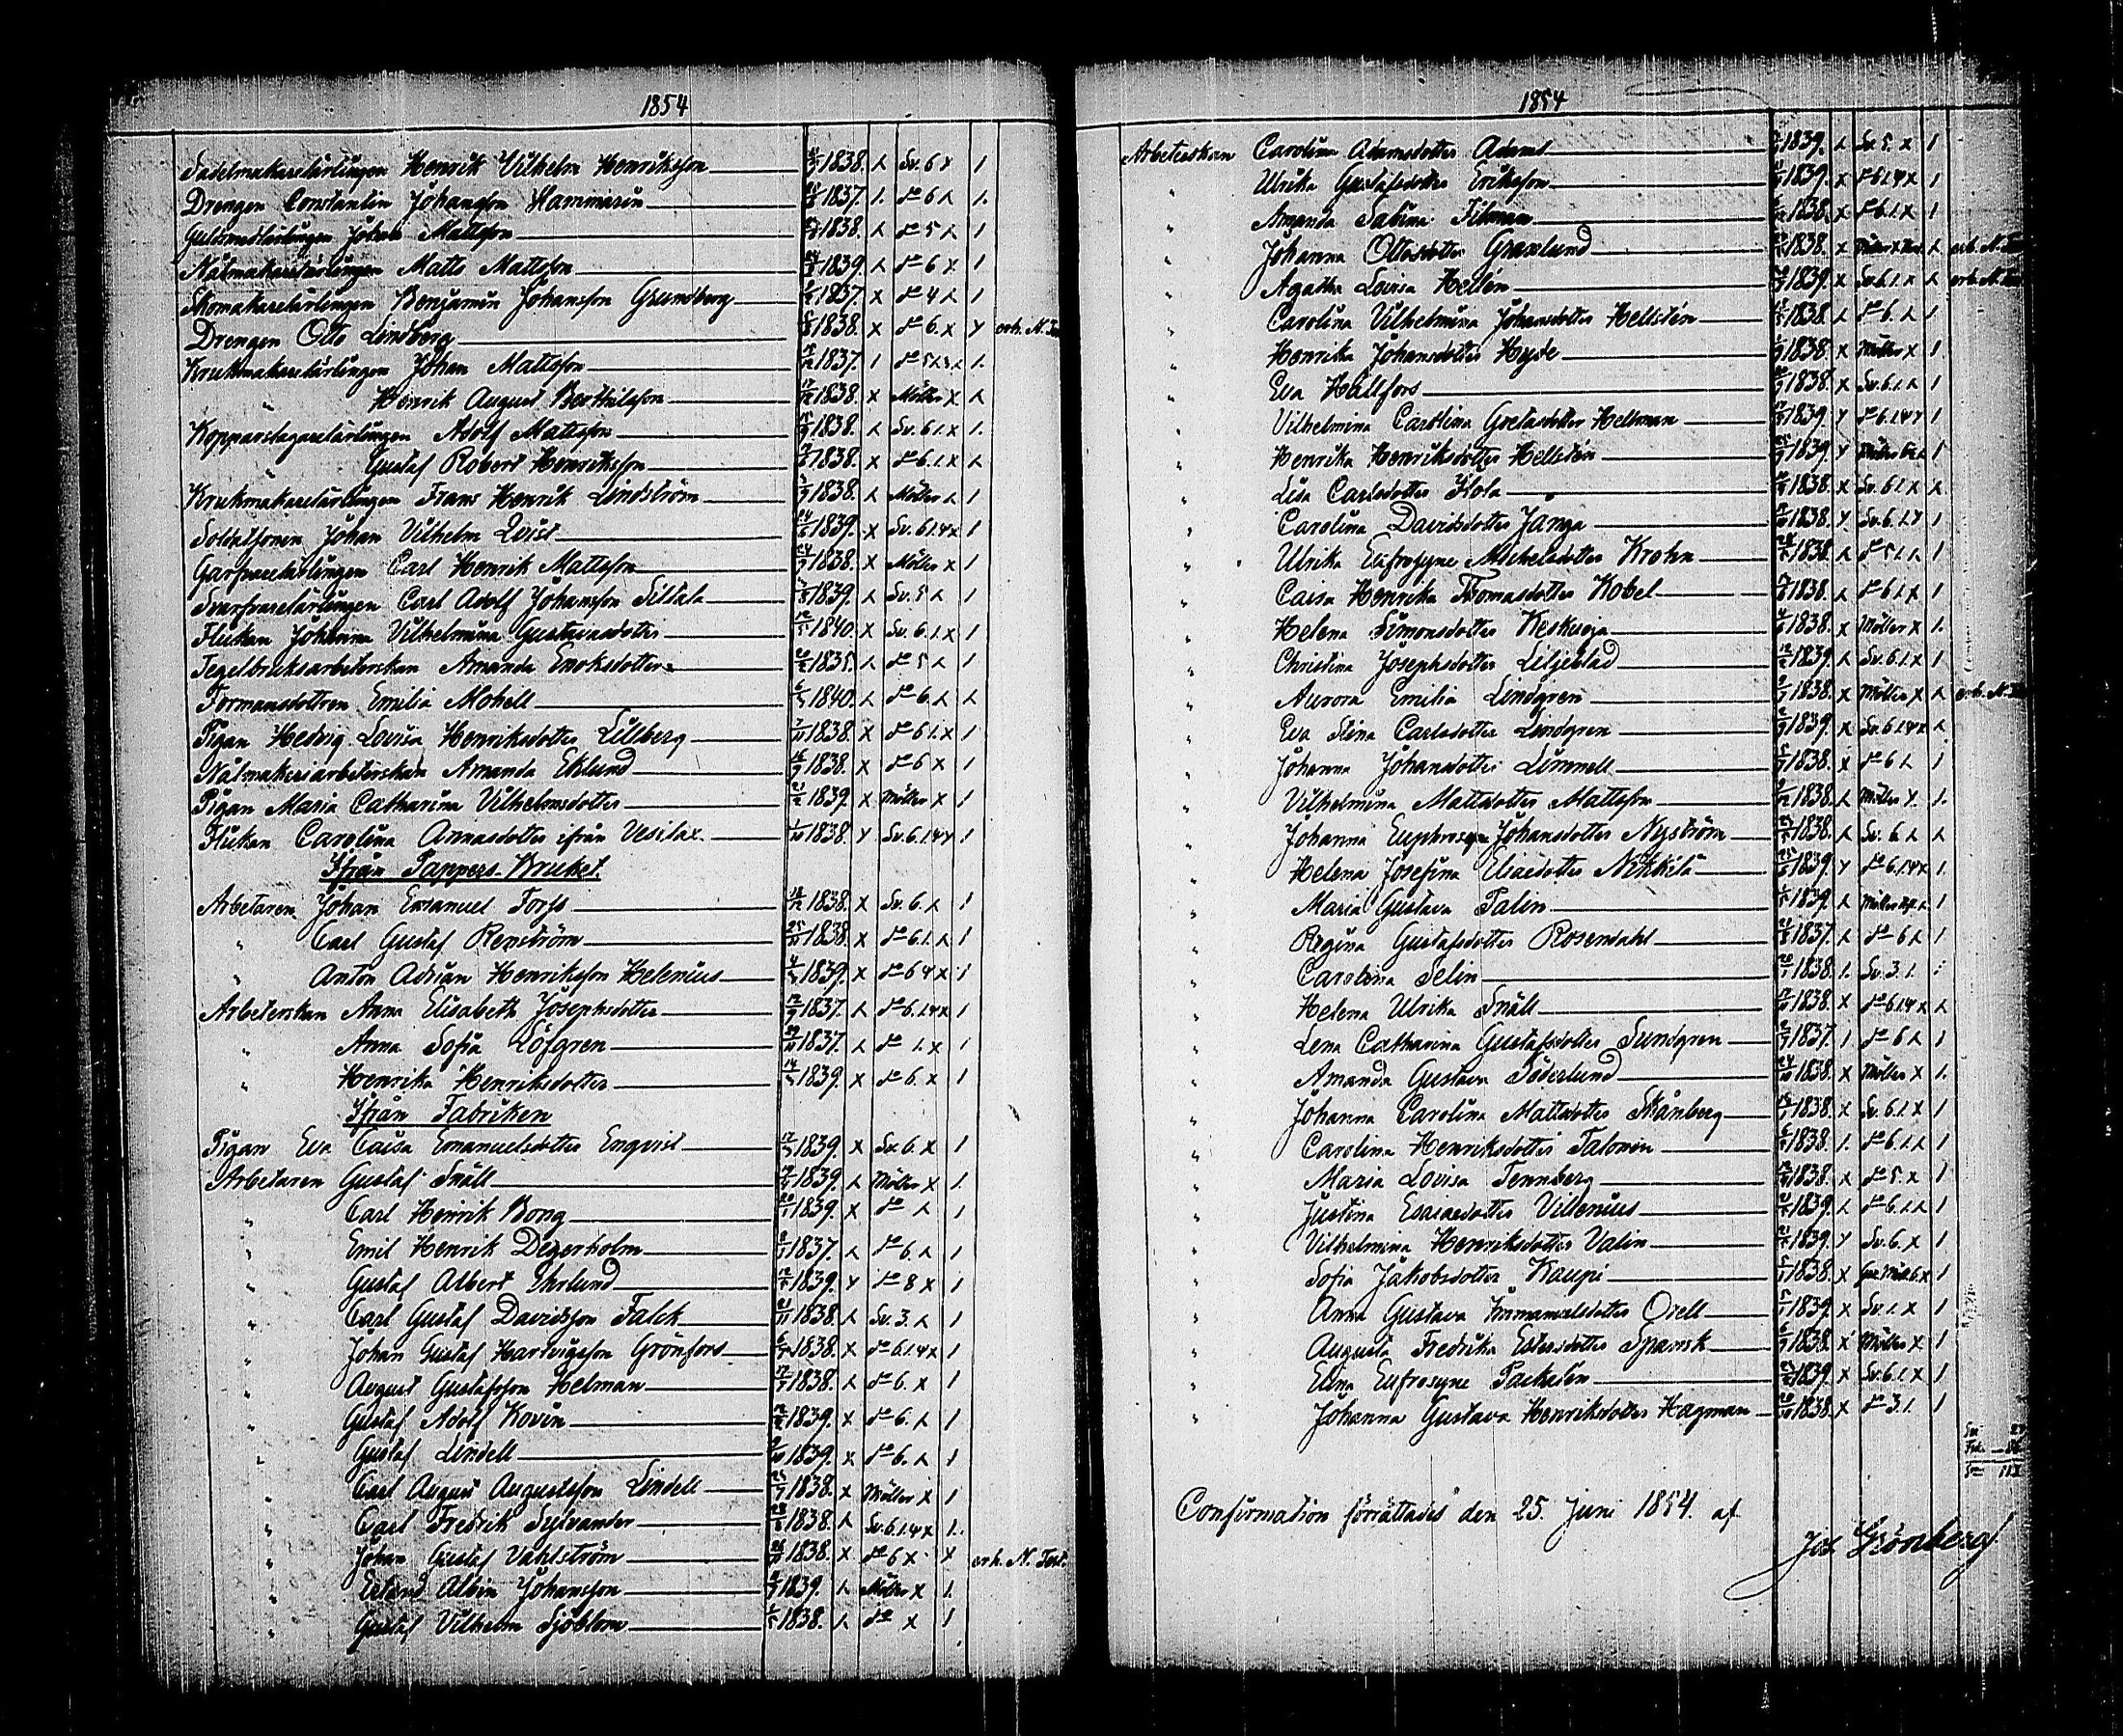 1854
Sadelmakarelärlingen Henrik Vilhelm Henriksson 1838. Sv. 6 x 1
Drengen Constantin Johansson Hammarén 1837. 1. do 6 1.
Johan Mattsson 1838. do 5 1
Nålmakarelärlingen Matts Mattsson 1839. do 6 x 1
Skomakarelärlingen Benjamin Johansson Grundberg 1837. x do 4 1
Drengen Otto Lindberg 1838. x do 6. x erh. N.
Krukmakarelärlingen Johan Mattsson 1837. 1 do 1.
" Henrik August Berthilsson 1838. x Möller x
Kopparslagarelärlingen Adolf Mattsson 1838. Sv. 6.1.x 1.
" Gustaf Robert Henriksson 1838. x do 6.1.x
Krukmakarelärlingen Frans Henrik Lindström 1838. Möller 1
Soldatsonen Johan Vilhelm Qvist 1839. x Sv. 6.1.4x 1
Garfvarelärlingen Carl Henrik Mattsson 24/9 1838. x Möller x 1
Svarfvarelärlingen Carl Adolf Johansson Siltala 1839. Sv. 5 1
Flickan Johanna Vilhelmina Gustavasdotter 1840. x Sv. 6.1.x 1
Tegelbruksarbeterskan Amanda Enoksdotter 1835. do 5 1
Formansdottren Emilia Mohell 1840. do 6.
Pigan Hedvig Lovisa Henriksdotter Lillberg 1838. x do 6 1.x 1
Nålmakeriarbeterskan Amanda Eklund 1838. x do 6 x 1
Pigan Maria Catharina Vilhelmsdotter 21/2 1839. x Möller x 1
Flickan Carolina Annasdotter ifrån Vesilax 1838. Sv. 6.1.4 1
Ifrån Pappers-Bruket
Arbetaren Johan Emanuel Forss 1838. x Sv. 6. 1
" Carl Gustaf Renström 1838. x do 6.1. 1
" Anton Adrian Henriksson Helenius 1839. x do 6 4 x 1
Arbeterskan Anna Elisabeth Josephsdotter 1837. do 6.1.4x 1
" Anna Sofia Löfgren 1837. do 1.x 1
" Henrika Henriksdotter 1839. x do 6. x 1
Ifrån Fabriken
Pigan Eva Caisa Emanuelsdotter Enqvist 1839. x Sv. 6. x 1
Arbetaren Gustaf Snäll 1839. Möller x 1.
" Carl Henrik Bong 1839. x do 1
" Emil Henrik Degerholm 1837. do 6. 1
" Gustaf Albert Ehrlund 1839. do 8 x 1
" Carl Gustaf Davidsson Falck 21/11 1838. Sv. 3. 1
" Johan Gustaf Hartvigsson Grönfors 1838. x do 6.1.4x 1
" August Gustafsson Helman 1838. do 6. x 1
" Gustaf Adolf Kovén 1839. x do 6. 1
" Gustaf Lindell 1839. x do 6. 1
" Carl August Augustsson Lindell 1838. x Möller x 1
" Carl Fredrik Sylvander 1838. Sv. 6.1.4x 1.
" Johan Gustaf Vahlström 1838. x do 6 x x erh. N. Test.
" Erland Albin Johansson 1839. Möller x 1.
" Gustaf Vilhelm Sjöblom 1838. do x 1
1854
Arbeterskan Carolina Adamsdotter Adams 1839. Sv. 5. x 1
" Ulrika Gustafsdotter Eriksson 1839. x do 6.1.4x 1
" Amanda Sabina Filman 1838. x do 6.1.x 1
" Johanna Ottosdotter Granlund 1838. x erh. N.
" Agatha Lovisa Hellén 1839. x Sv. 6.1.x erh. N.
" Carolina Vilhelmina Johansdotter Hellstén 1838. do 6. 1
" Henrika Johansdotter Hyde 1838. x Möller x 1
" Eva Hallfors 1838. x Sv. 6.1. 1
" Vilhelmina Carolina Gretasdotter Hellman 1839. do 6.1.4 1
" Henrika Henriksdotter Hellstén 1839. 1
" Lisa Carlsdotter Hola 1838. x Sv. 6.1.x
" Carolina Davidsdotter Janga 1838. Sv. 6.1. 1
" Ulrika Eufrosyne Michelsdotter Krohn 1838. do 5.1. 1
" Caisa Henrika Thomasdotter Kobel 1838. do 6.1.x 1
" Helena Simonsdotter Keskioja 1838. x Möller x 1.
" Christina Josephsdotter Liljeblad 1839. Sv. 6.1.x 1
" Aurora Emilia Lindgren 1838. x Möller x erh. N.
" Eva Stina Carlsdotter Lindgren 1839. x Sv. 6.1.4x
" Johanna Johansdotter Limnell 1838. x do 6 1
" Vilhelmina Mattsdotter Mattsson 1838. Möller 1.
" Johanna Euphrosyne Johansdotter Nyström 1838. Sv. 6.
" Helena Josefina Eliaedotter Nikkilä 1839. do 6.1.4x 1.
" Maria Gustava Palin 1839. Möller 1
" Regina Gustafsdotter Rosendahl 1837. do 6 1
" Carolina Selin 1838. 1. Sv. 3. 1.
" Helena Ulrika Snäll 1838. x do 6.1.4 x
" Lena Catharina Gustafsdotter Sundgren 1837. 1 do 6 1
" Amanda Gustava Söderlund 1838. x Möller x 1.
" Johanna Carolina Mattsdotter Skånberg 1838. x Sv. 6.1 x 1
" Carolina Henriksdotter Salonen 1838. 1. do 6.1. 1
" Maria Lovisa Tennberg 1838. x do 5. x 1
" Justina Esaiaedotter Villenius 1839. do 6.1. 1
" Vilhelmina Henriksdotter Valin 1839. Sv. 6. x 1
" Sofia Jakobsdotter Kaupi 1838. x 1
" Anna Gustava Immanuelsdotter Orell 1839. x Sv. 1. x 1
" Augusta Fredrika Estersdotter Spansk 1838. x Möller x 1
" Elina Eufrosyne Packalén 1839. x Sv. 6.1.x 1
" Johanna Gustava Henriksdotter Hagman 1838. x do 3.1. 1
Confirmation förrättades den 25. Juni 1854. af
Jos Grönberg